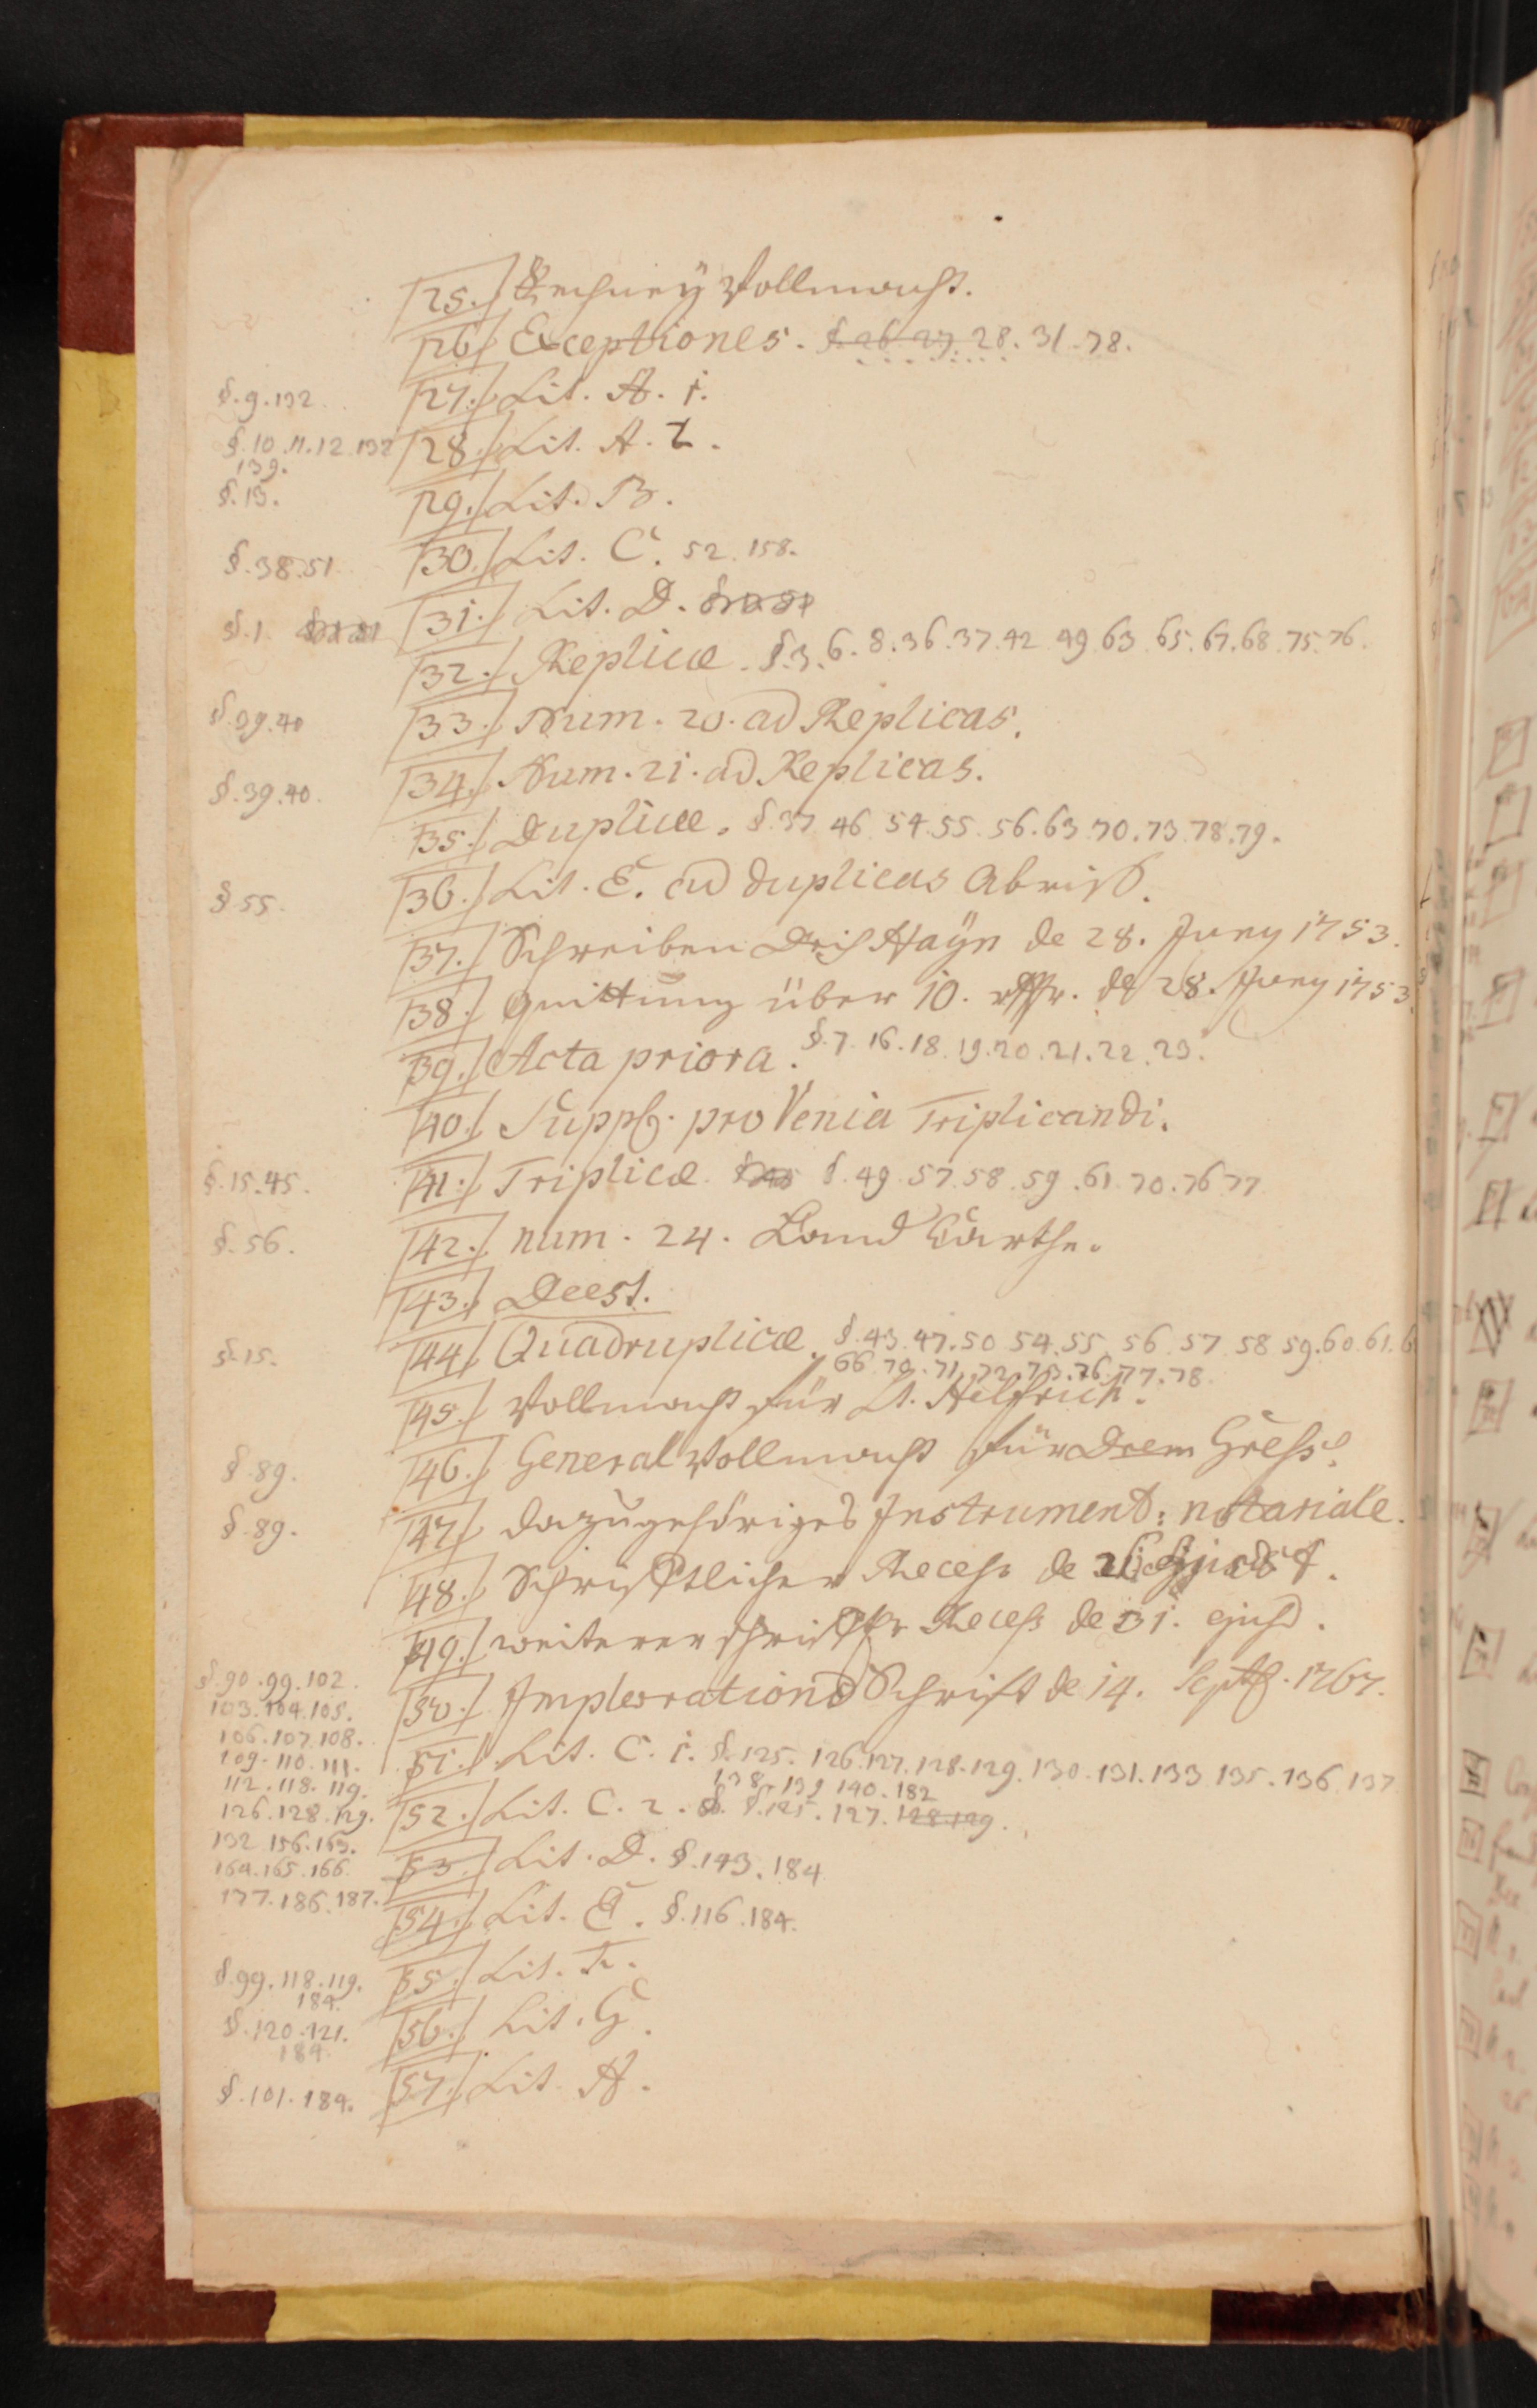 25. Vollmacht.
26. Exceptiones. §. 26. 27. 28. 31. 78.
§. 9. 132. 27. Lit. A. 1.
§. 10. 11. 12. 132 28. Lit. A. 2.
139.
§. 13. 29. Lit. B.
§. 38. 51. 30. Lit. C. 52. 158.
§. 1. 31. Lit. D.
32. Replicæ. §. 3. 6. 8. 36. 37. 42 49 63 65. 67. 68. 75. 76.
§. 39. 40 33. Num. 20. ad Replicas.
§. 39. 40. 34. Num. 21. ad Replicas.
35. Duplicæ. §. 37 46 54. 55. 56. 63 70. 73 78. 79.
§ 55. 36. Lit. E. ad duplicas Abriß.
37. Schreiben Dris Hayn de 28. Juny 1753.
38. Quittung über 10. de 28. Juny 1753.
39. Acta priora. §. 7. 16. 18. 19. 20. 21. 22. 23.
40. Suppl. pro Venia Triplicandi.
§. 15. 45. 41. Triplicæ. §. 49. 57. 58. 59. 61. 70. 76 77
§. 56. 42. num. 24. Land Carthe.
43. Deest.
§. 15. 44. Quadruplicæ. §. 43. 47. 50 54. 55 56 57 58 59. 60. 61. 6
66 70. 71. 72. 73. 76. 77. 78.
45. Vollmacht für Lt. Helfrich.
§. 89. 46. General Vollmacht für Drem Greß.
§. 89. 47. dazugehöriges Instrument: notariale.
48. Schrifftlicher Recess de
49. weiterer Recess de 31. ejusd.
§. 90. 99. 102. 50. Implorations Schrift de 14. Sept. 1767.
103. 104. 105.
106. 107. 108.
109. 110. 111. 51. Lit. C. 1. §. 125. 126. 127. 128. 129. 130. 131. 133 135. 136 137
112. 118. 119. 138. 139 140. 182
126. 128. 129. 52. Lit. C. 2. §. 125. 127. 128. 129.
132 156. 163.
164. 165. 166. 53. Lit. D. §. 143. 184
177. 186. 187. 54. Lit. E. §. 116. 184.
§. 99. 118. 119. 55. Lit. F.
184.
§. 120. 121. 56. Lit. G.
184.
§. 101. 184. 57. Lit. H.